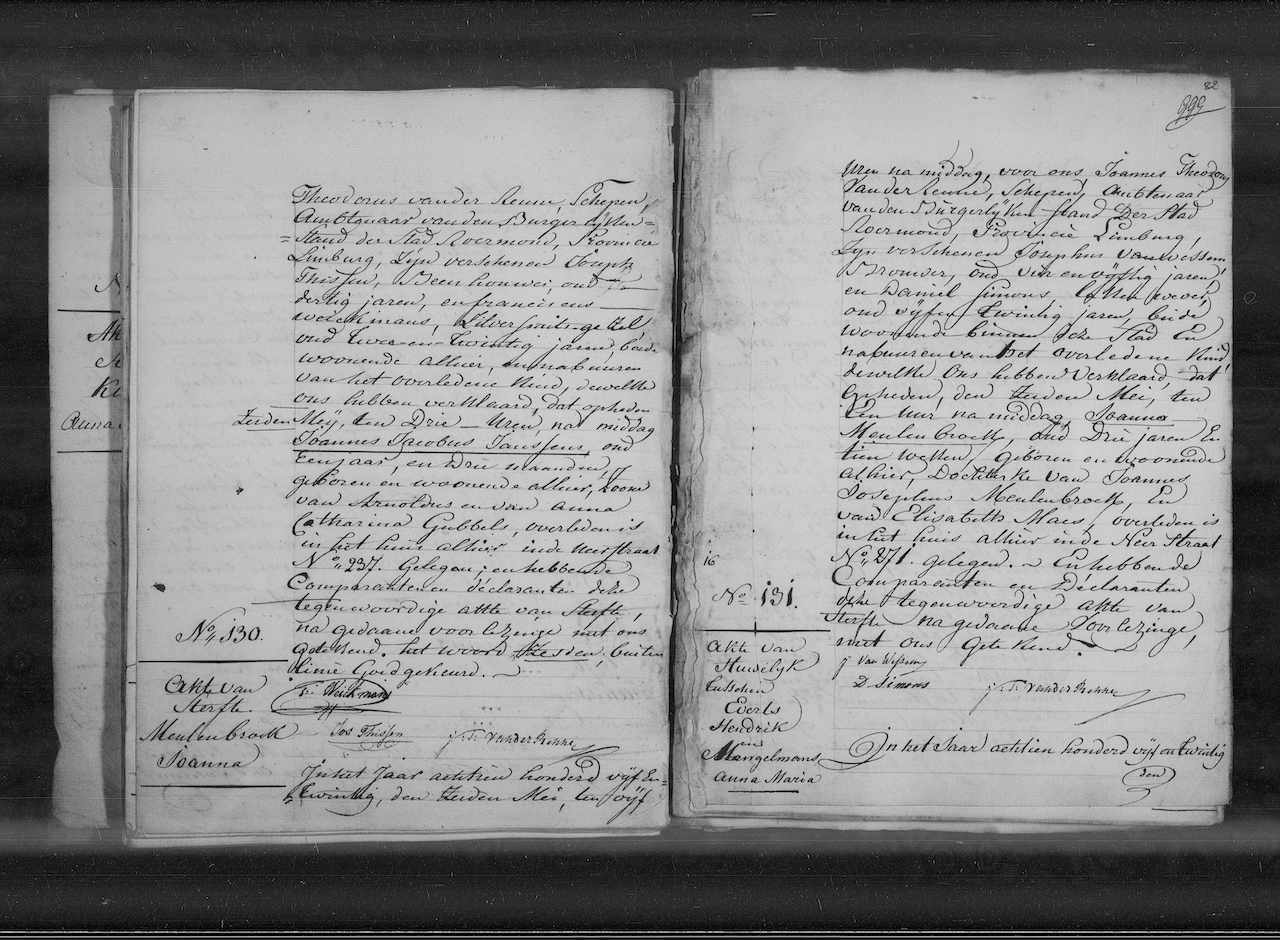 N
Ak
Anna
Theodorus vander Renne, Schepen,
Ambtenaar van den Burgerlyken
Stand der Stad Roermond, Provincie
Limburg, Zyn verschenen Joseph
Thissen, Beenhouwer, oud
dertig jaren, en franciscus
welckmans, Zilversmits-gezel
oud twee-en-twintig jaren, beide
woonende alhier, en nabuuren
van het overledene Kind, dewelke
ons hebben verklaard, dat opheden
Zesden Meÿ, ten Drie Uren, na middag
Joannes Jacobus Janssens, oud
Een jaar, en Drie maanden,
geboren en woonende alhier, Zoone
van Arnoldus en van Anna
Catharina Gubbels, overleden is
in het huis alhier in de Neerstraat
N° 237. Gelegen; en hebben de
Comparanten en déclaranten deze
tegenwoordige akte van Sterfte,
na gedaane voorlezinge met ons
geteekend. het woord Zesden, buiten
linie Goedgekeurd.
N° 130.
Akte van
Sterfte.
Meulenbroek
Joanna
Jos Thissen
J. T. VanderRenne
In het Jaar achtien honderd vÿf En
twintig, den Zesden Mei, ten vÿf
82
999
Uren na middag, voor ons, Joannes Theodorus
Van der Renne, Schepen, Ambtenaar
van den Bürgerlÿken Stand Der Stad
Roermond, Provincie Limburg,
Zyn verschenen Josephus van Wessem,
Brouwer, oud vier en vÿftig jaren,
en Daniel Simons wever,
oud vÿf en twintig jaren, beide
woonende binnen deze Stad En
nabuuren van het overledene Kind,
dewelke Ons hebben Verklaard, dat
Opheden, den Zesden Mei, ten
Een Uur na middag, Joanna
Meulenbroek, oud Drie jaren En
tien weken, geboren en woonende
alhier, Dochterke van Joannes
Josephus Meulenbroek, En
van Elisabeth Maes, overleden is
in het huis alhier in de Neer Straat
N° 271. Gelegen. En hebben de
Comparanten en Déclaranten
deze tegenwoordige akte van
Sterfte na gedaane Voorlezinge,
met ons Geteekend.
16
N° 131.
Akte van
Huwelÿk
tusschen
Everts
Hendrik
en
Mangelmans
Anna Maria
J Van Wessem
D. Simons
J. T. VanderRenne
In het Jaar achtien honderd vÿf en twintig
den